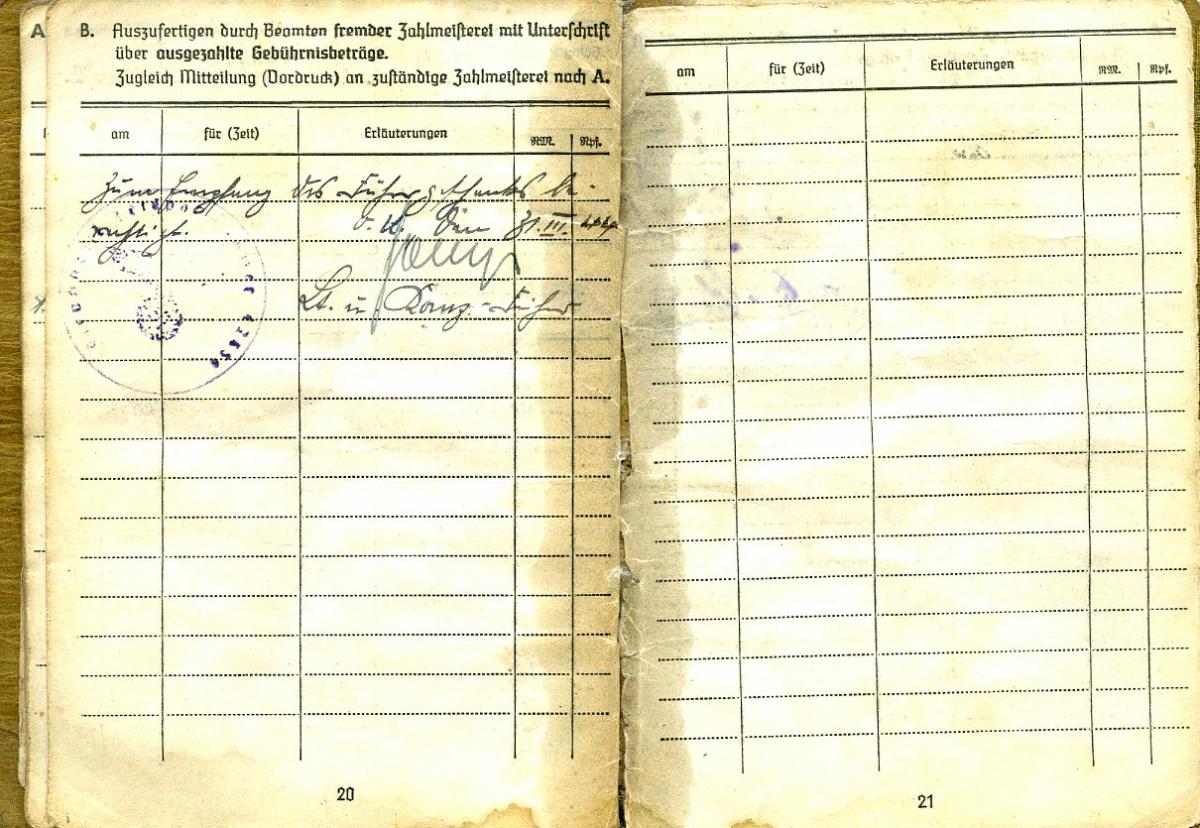 A
B. Auszufertigen durch Beamten fremder Zahlmeisterei mit Unterschrift
über ausgezahlte Gebührnisbeträge.
Zugleich Mitteilung (Vordruck) an zuständige Zahlmeisterei nach A.
am für (Zeit) Erläuterungen RM. Rpf.
Zum Empfang des Führergeschenks be-
rechtigt.
O.U. den 31.III.44
Lt. u. Komp.-Führer
20
am für (Zeit) Erläuterungen RM. Rpf.
21